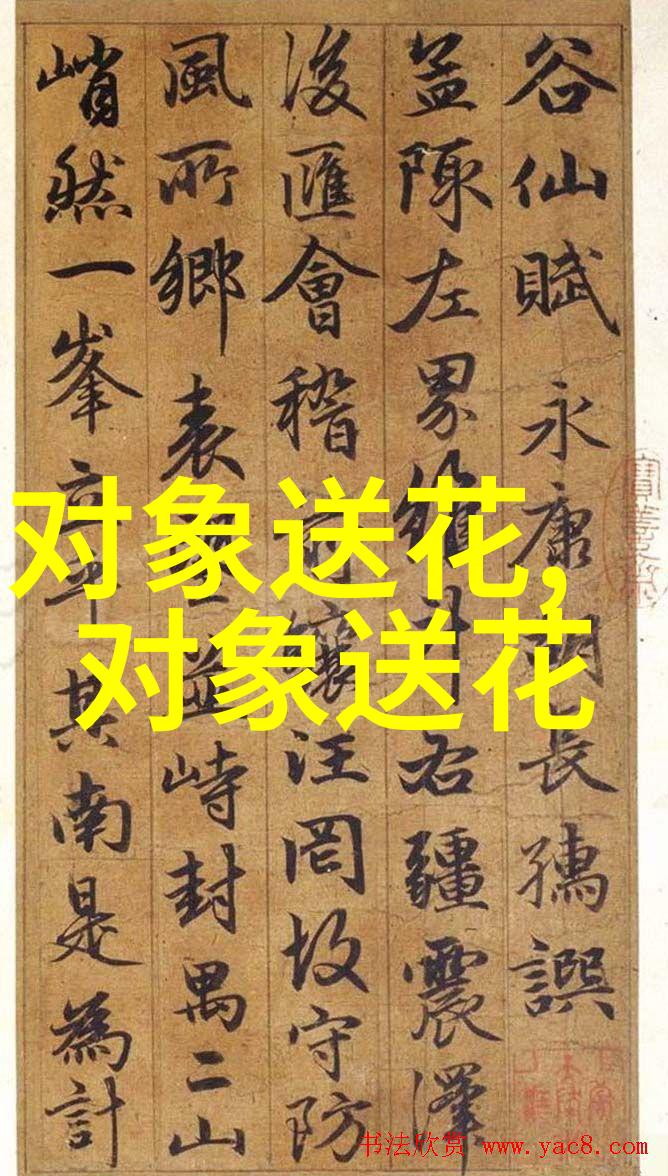 对象送花,
对象送花
谷仙賦 永康胡長孺譔
陳左界斗右疆震澤
匯會稽前汪罔故守防
風所鄉表並峙封禺二山
峭然一峯其南是為計
书法欣赏 www.yac8.com